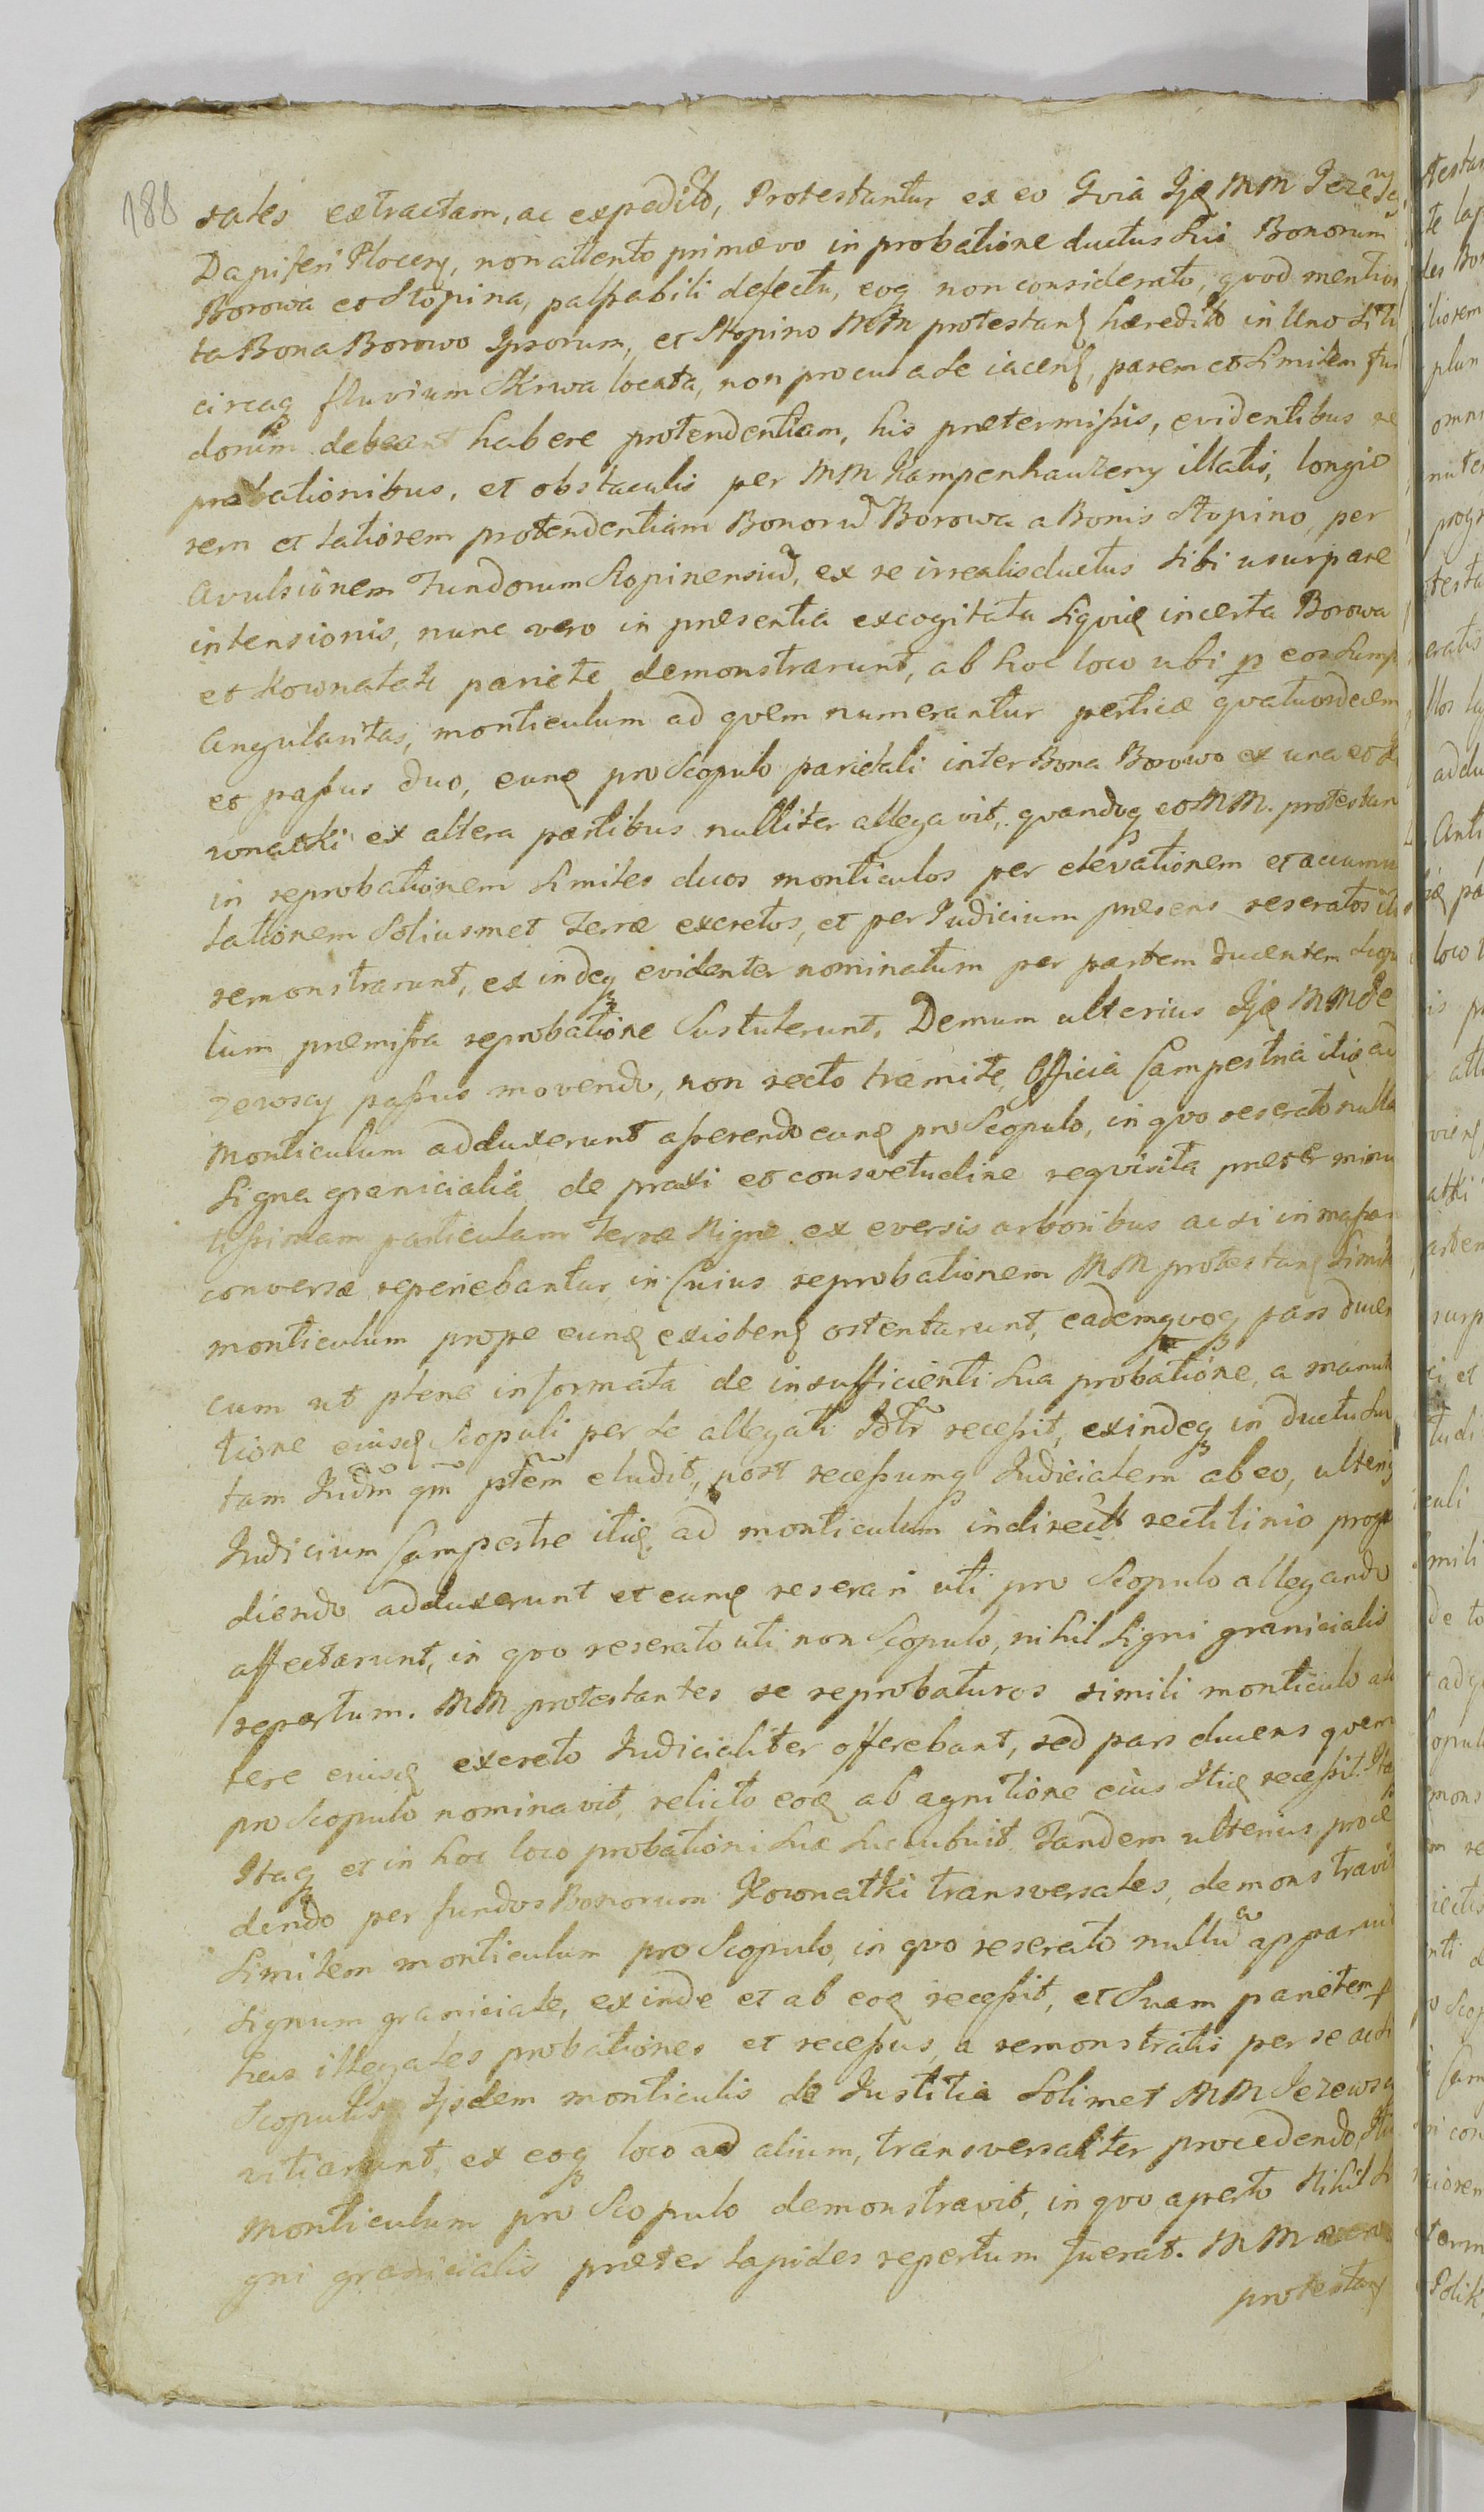 188
rales extractam, ac expedito, Protestantur ex eo Qvia Ijdē MM Jezewscÿ
Dapiferi Plocen̄, non attento primævo in probatione ductus sui Bonorum
Borowa et Stopina, palpabili defectu, eoq̢ non considerato, qvod mention
ta Bona Borowo Ipsorum, et Stopino MM protestanē hæredit̄o in Uno Situ
circaq̢ fluvium Skrwa locata, non procul a se iacenē, parem et Similem fun
dorum debeant habere protendentiam, his prætermissis, evidentibus re
probationibus, et obstaculis per MM Kampenhauzeny illatis, longio
rem et latiorem protendentiam Bonorū Borowa a Bonis Stopino, per
avulsionem Fundorum Stopinensiū, ex re irrealis ductus sibi usurpare
intensionis, nunc vero in præsentia excogitata Liqvidē incerta Borowa
et Kownatki pariete demonstrarunt, ab hoc loco ubi p eos Sump
angularitas, monticulum ad qvem numerantur perticæ qvatuordecem
et passus duo, eunē pro Scopulo parietali inter Bona Borowo ex una et Ko
wnatki ex altera partibus nulliter allegavit, qvandoq̢ et MM. protestan
in reprobationem similes duos monticulos per elevationem et accumu
lationem Soliusmet Terræ excretos, et per Judicium præsens reseratos
remonstrarunt, ex indeq̢ evidenter nominatum per partem ducentem Scopu
lum præmissa reprobatione Sustulerunt. Demum ulterius Ijdē MM Je
zewscy passus movendo, non recto tramite, Officia Campestria itidē ad
monticulum adduxerunt asserendo eunē pro Scopulo, in qvo reserato nulla
Signa granicialia de praxi et consvetudine reqvisita præter minu
tissimam particulam Terræ Nigræ ex eversis arboribus ac si in massam
conversæ reperiebantur, in Cuius reprobationem MM protestanē Simile
monticulum prope eunē existenē ostentarunt, eademqvoq̢ pars ducen
cum ut plene informata de insufficienti Sua probatione, a manut
tione eiusē Scopuli per se allegati Idtr recessit, exindeq̢ in ductu Suo
tam Judm qm ptem eludit, post recessumq̢ Judicialem ab eo, ulterius
Judicium Campestre itidē ad monticulum indirecte rectilinio progre
diendo adduxerunt et eunē reserari uti pro Scopulo allegando
affectarunt, in qvo reserato uti non Scopulo, nihil Signi granicialis
repertum. MM protestantes se reprobaturos simili monticulo a la
tere eiusē excreto Judicialiter offerebant, sed pars ducens qvem
pro Scopulo nominavit, relicto eoē ab agnitione eius Itidē recessit.
Itaq̢ et in hoc loco probationi Suæ Succubuit. Tandem ulterius proce
dendo per fundos Bonorum Kownatki transversales, demonstravit
Similem monticulum pro Scopulo, in qvo reserato nullū apparuit
Signum graniciale, exinde et ab eoē recessit, et Suam parietem p
has illegales probationes et recessus, a remonstratis per se ac si
Scopulis Ijsdem monticulis de Justitia Solimet MM Jezewscy
vitiarunt, ex eoq̢ loco ad alium, transversaliter procedendo,
monticulum pro Scopulo demonstravit, in qvo aperto Nihil Si
gni granicialis præter lapides repertum fuerat. MM
protestanē